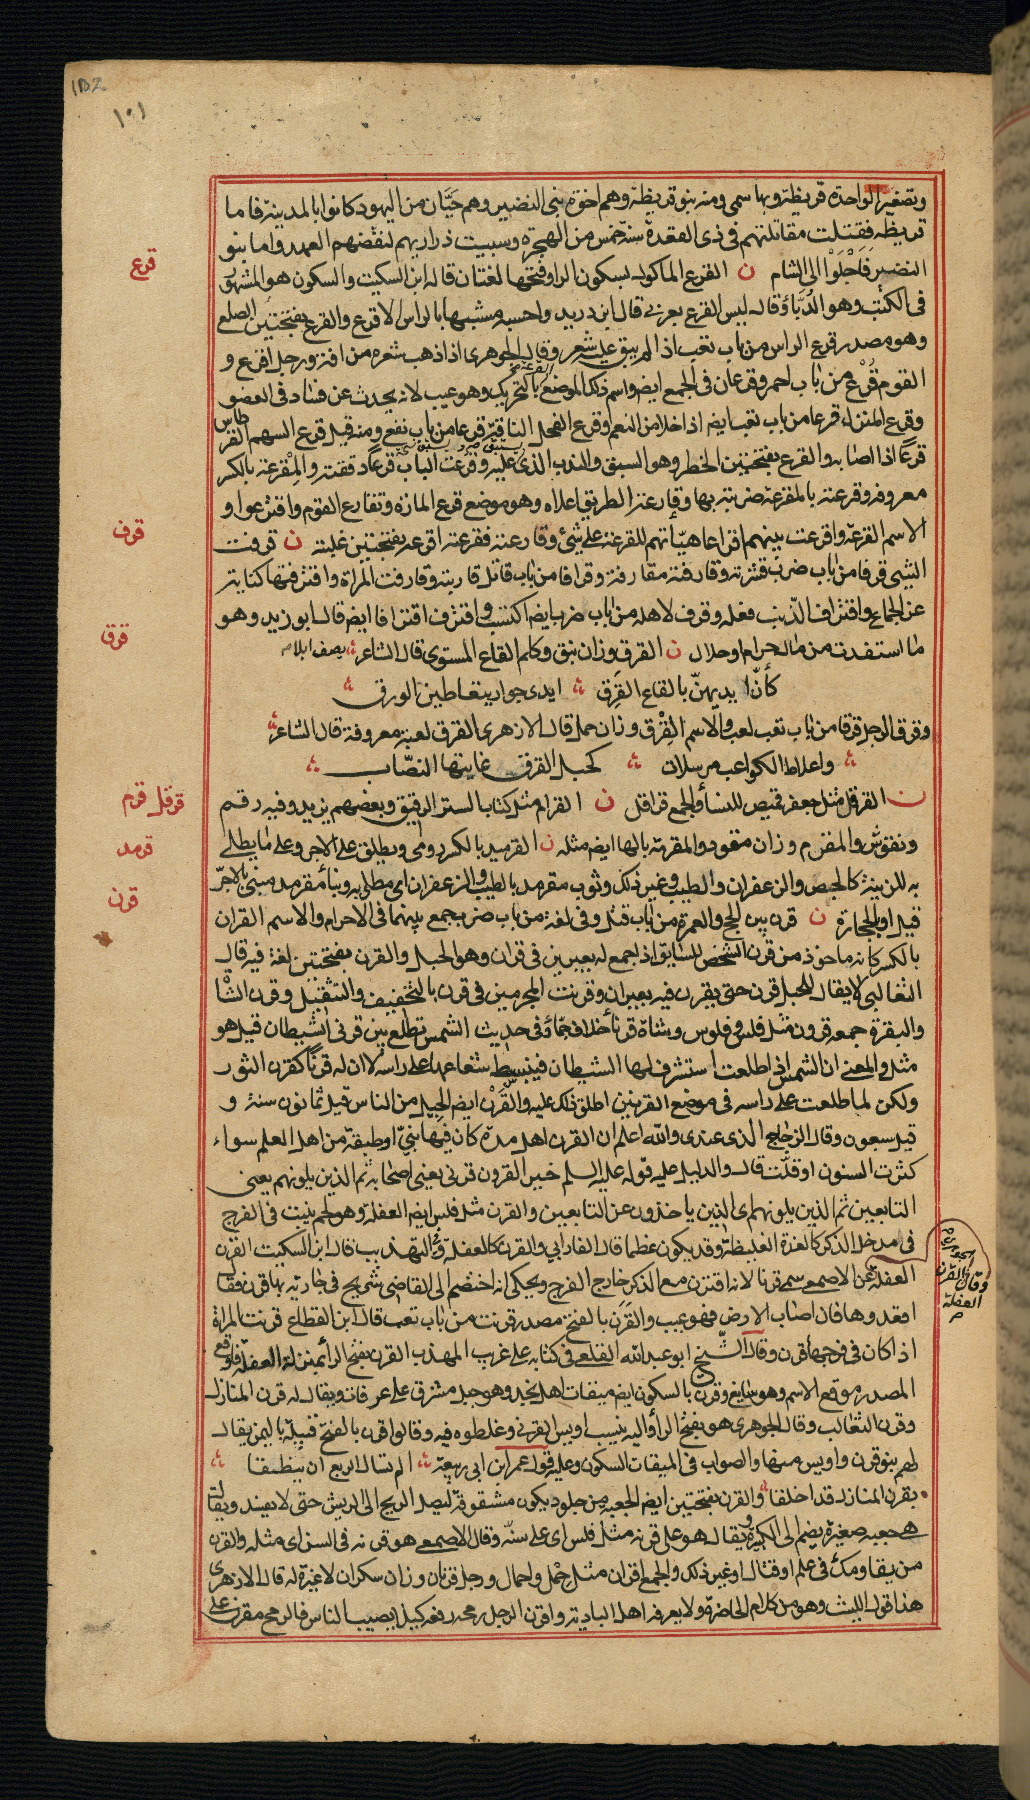 182
١٠١
وتصغير الواحدة قريظة وبها سمي ومنه بنو قريظة وهم اخوة بنى النضير وهم حيّان من اليهود كانوا بالمدينة فاما
قريظة فقتلت مقاتلتهم فى ذى القعدة سنة خمس من الهجرة وسبيت ذراريهم لنقضهم العهد واما بنو
النضير فَاُجْلُوْا الى الشام ن القرع الماكول بسكون الرا وفتحها لغتان قاله ابن السكيت والسكون هو المشهور
فى الكتب وهو الدُّبَّاؤ قال ليس القرع بعربى قال ابن دريد واحسبه مشبها بالراس الاقرع والقرع بفتحتين الصلع
وهو مصدر قرع الراس من باب تعب اذا لم يبق عليه شعر وقال الجوهرى اذا ذهب شعره من افة ورجل اقرع و
القوم قُرْع من باب احمر وقرعان فى الجمع ايضا واسم ذلك الموضع القرعة بالتحريك وهو عيب لانه يحدث عن فساد فى العضو
وقرع المنزل قرعا من باب تعب ايضا اذا خلا من النعم وقرع الفحل الناقة قرعا من باب نفع ومنه قيل قرع السهم القرطاس
قرعًا اذا اصابه والقرع بفتحتين الخطر وهو السبق والندب الذى يستبق عليه وقرعت الباب قرعًا دققته والمِقْرعة بالكسر
معروفه وقرعته بالمقرعة ضربته بها وقارعة الطريق اعلاه وهو موضع قرع المارة وتقارع القوم واقترعوا و
الاسم القرعة واقرعت بينهم اقراعا هيّأتهم للقرعة على شئ وقارعته فقرعته اقرعه بفتحتين غلبته ن قرفت
الشى قرفا من باب ضرب قشرته وقارفته مقارفة وقرافا من باب قاتل قاربته وقارفت المراة واقترفتها كناية
عن الجماع واقتراف الذنب فعله وقرف لاهله من باب ضرب ايضا اكتسب واقترف اقترافا ايضا قال ابو زيد وهو
ما استفدت من مال حرام او حلال ن القرق وزان نبق وكلم القاع المستوى قال الشاعر يصف ابلا
كأنّ ايديهنّ بالقاع القَرِق ايدى جوار يتعاطين الورق
وقرق الرجل قرقا من باب تعب لعب والاسم القِرْق وزان حمل قال الازهرى القرق لعبة معروفة قال الشاعر
واعلاط الكواعب مرسلات كحبل القرق غايتها النصاب
ن القرقل مثل جعفر قميص للنسأ والجمع قراقل ن القرام مثل كتاب الستر الرقيق وبعضهم يزيد وفيه رقم
ونقوش والمقرم وزان مقود والمقرمة بالها ايضا مثله ن القرميد بالكسر رومى ويطلق على الاجر وعلى ما يطلى
به للزينة كالجص والزعفران والطيب وغير ذلك وثوب مقرمد بالطيب والزعفران اى مطلى به وبنأ مقرمد مبنى بالاجر
قيل او بالحجارة ن قرن بين الحج والعمرة من باب قتل وفى لغة من باب ضرب جمع بينهما فى الاحرام والاسم القران
بالكسر كانه ماخوذ من قرن الشخص للسايق اذا جمع له بعيرين فى قران وهو الحبل والقرن بفتحتين لغة فيه قال
الثعالبى لا يقال للحبل قرن حتى يقرن فيه بعيران وقرنت المجرمين فى قرن بالتخفيف والتثقيل وقرن الشاة
والبقرة جمعه قرون مثل فلس وفلوس وشاة قرنأ خلاف جمّاء وفى حديث الشمس تطلع بين قرنى الشيطان قيل هو
مثل والمعنى ان الشمس اذا طلعت استشرف لها الشيطان فينبسط شعاعها على راسه لا ان له قرنًا كقرن الثور
ولكن لما طلعت على راسه فى موضع القرنين اطلق ذلك عليه والقَرْن ايضا الجيل من الناس قيل ثمانون سنة و
قيل سبعون وقال الزجاج الذى عندى والله اعلم ان القرن اهل مدة كان فيها نبىّ او طبقة من اهل العلم سواء
كثرت السنون او قلّت قال والدليل عليه قوله عليه السلم خير القرون قرنى يعنى اصحابه ثم الذين يلونهم يعنى
التابعين ثم الذين يلونهم اى الذين ياخذون عن التابعين والقرن مثل فلس ايضا العفلة وهو لحم ينبت فى الفرج
فى مدخل الذكر كالغدة الغليظة وقد يكون عظما قال الفارابى والقرن كالعفلة وفى التهذيب قال ابن السكيت القرن
العفلة عن الاصمعى سمى قرنا لانه اقترن مع الذكر خارج الفرج ويحكى انه اختصم الى القاضى شريح فى جارية بها قرن فقال
اقعدوها فان اصاب الارض فهو عيب والقَرَن بالفتح مصدر قرنت من باب تعب قال ابن القطاع قرنت المراة
اذا كان فى فرجها قرن وقال الشيخ ابو عبدالله القلعى فى كتابه على غريب المهذب القرن بفتح الرأ بمنزلة العفلة فاوقع
المصدر موقع الاسم وهو شايع وقرن بالسكون ايضا ميقات اهل نجد وهو جبل مشرف على عرفات ويقال له قرن المنازل
وقرن الثعالب وقال الجوهرى هو بفتح الرأ واليه ينسب اويس القرنى وغلطوه فيه وقالوا قرن بالفتح قبيلة باليمن يقال
لهم بنو قرن واويس منها والصواب فى الميقات السكون وعليه قول عمر ابن ابى ربيعة الم تسال الربع ان ينطقا
بقرن المنازل قد اخلقا والقرن بفتحتين ايضا الجعبه من جلود يكون مشقوقة ليصل الريح الى الريش حتى لا يفسد ويقال
هى جعبه صغيرة يضم الى الكبيرة ويقال هو على قرنه مثل فلس اى على سنّه وقال الاصمعى هو قرنه فى السن اى مثله والقرن
من يقاومك فى علم او قتال او غير ذلك والجمع اقران مثل حِمْل واحمال ورجل قرنان وزان سكران لا غيرة له قال الازهرى
هذا قول الليث وهو من كلام الحاضرة ولا يعرفه اهل البادية واقرن الرجل رمحه رفعه كيلا يصيب الناس فالرمح مقرن على
قرع
قرف
قرق
قرقل قرم
قرمد
قرن
وقال
والقرن
العفلة